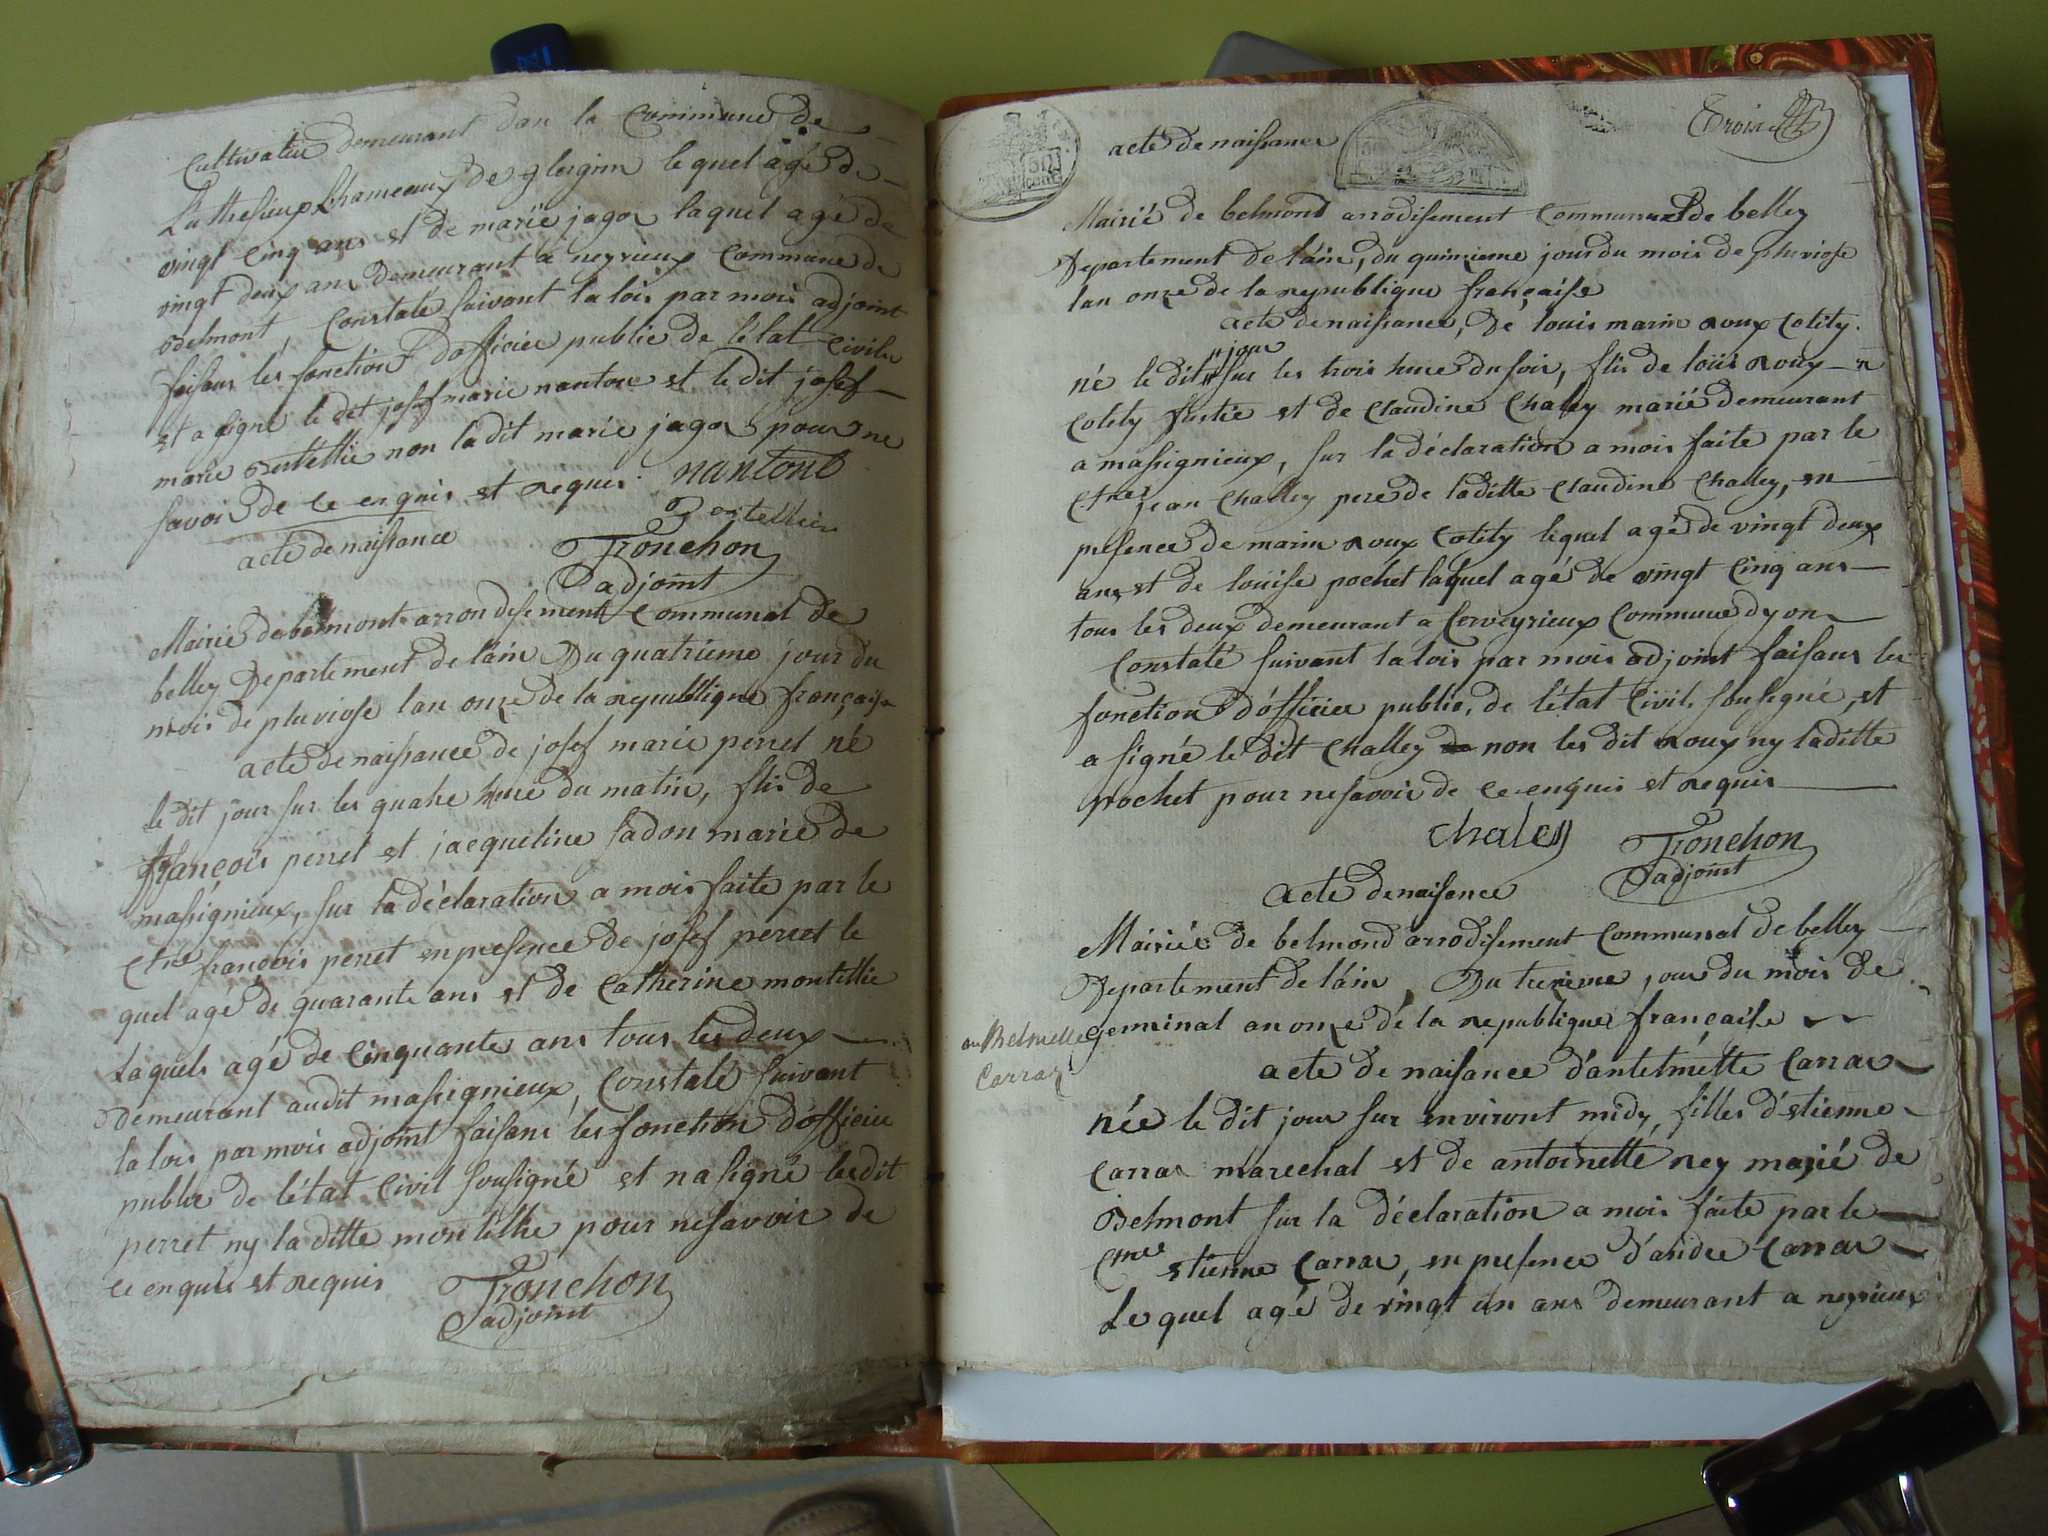 Cultivateur demeurant dan la Commune de
Luthesieux hameaux de lequel agé de
vingt Cinq ans et de marie jagor laquel agé de
vingt deux ans demeurant à neyrieux Commune de
Belmont, Constaté suivant la lois par mois adjoint
faisans les fonction d'officier public de l'état Civile
et a signé le dit josef marie nantone et le dit josef
marie non ladit marie jagor pour ne
savoir de ce enquis et requis. nantont
Tronchon
adjoint
acte de naissance
Mairie de belmont arrondisement Communal de
belley Departement de l'ain Du quatrieme jour du
mois de pluviose l'an onze de la republique française
acte de naissance de josef marie perret né
le dit jour sur les quatre heure du matin, fils de
françois perret et jacqueline sadon marie de
massignieux, sur la déclaration a mois faite par le
françois perret en presence de josef perret le
quel agé de quarante ans et de Catherine montillie
Laquels agé de Cinquante ans tous les deux
demeurant audit massignieux, Constaté suivant
la lois par mois adjoint faisans les fonction d'officier
public de l'état Civil sousigné et na signé le dit
perret ny la ditte montillie pour ne savoir de
ce enquis et requis
Tronchon
adjoint
acte de naissance
Mairié de belmond arrodisement Communal de belley
Departement de l'ain, du quinzieme jour du mois de pluviose
lan onze de la republique française
acte de naissance, De louis marin roux Colity.
jour
né le dit sur les trois heure du soir, fils de loüis roux
Colity et de Claudine Chaley marié demeurant
a massignieux, sur la déclaration a mois faite par le
jean Challey pere de laditte Claudine Challey, en
presence de marin roux Colity lequel agé de vingt deux
ans et de loüise pochet laquel agé de vingt Cinq ans
tous les deux demeurant a Cerveyrieux Commune dyon
Constaté suivant la lois par mois adjoint faisans les
fonction d'officier public, de l'état Civil, sousigné, et
a signé le dit Challey non les dit roux ny laditte
pochet pour ne savoir de ce enquis et requis
chaley
Tronchon
adjoint
acte de naisance
Mairiée de belmond arrodisement Communal de belley
Departement de l'ain, Du treizieme jour du mois de
germinal an onze de la republique française
ou Belmette
Carraz
acte de naisance d'antelmette Carrar
née le dit jour sur environt midy, filles d'etienne
Carrar marechal et de antoinette rey marié de
Belmont sur la déclaration a mois faite par le
etienne Carrar, en presence d'andre Carrar
Le quel agé de vingt un ans demeurant a neyrieux